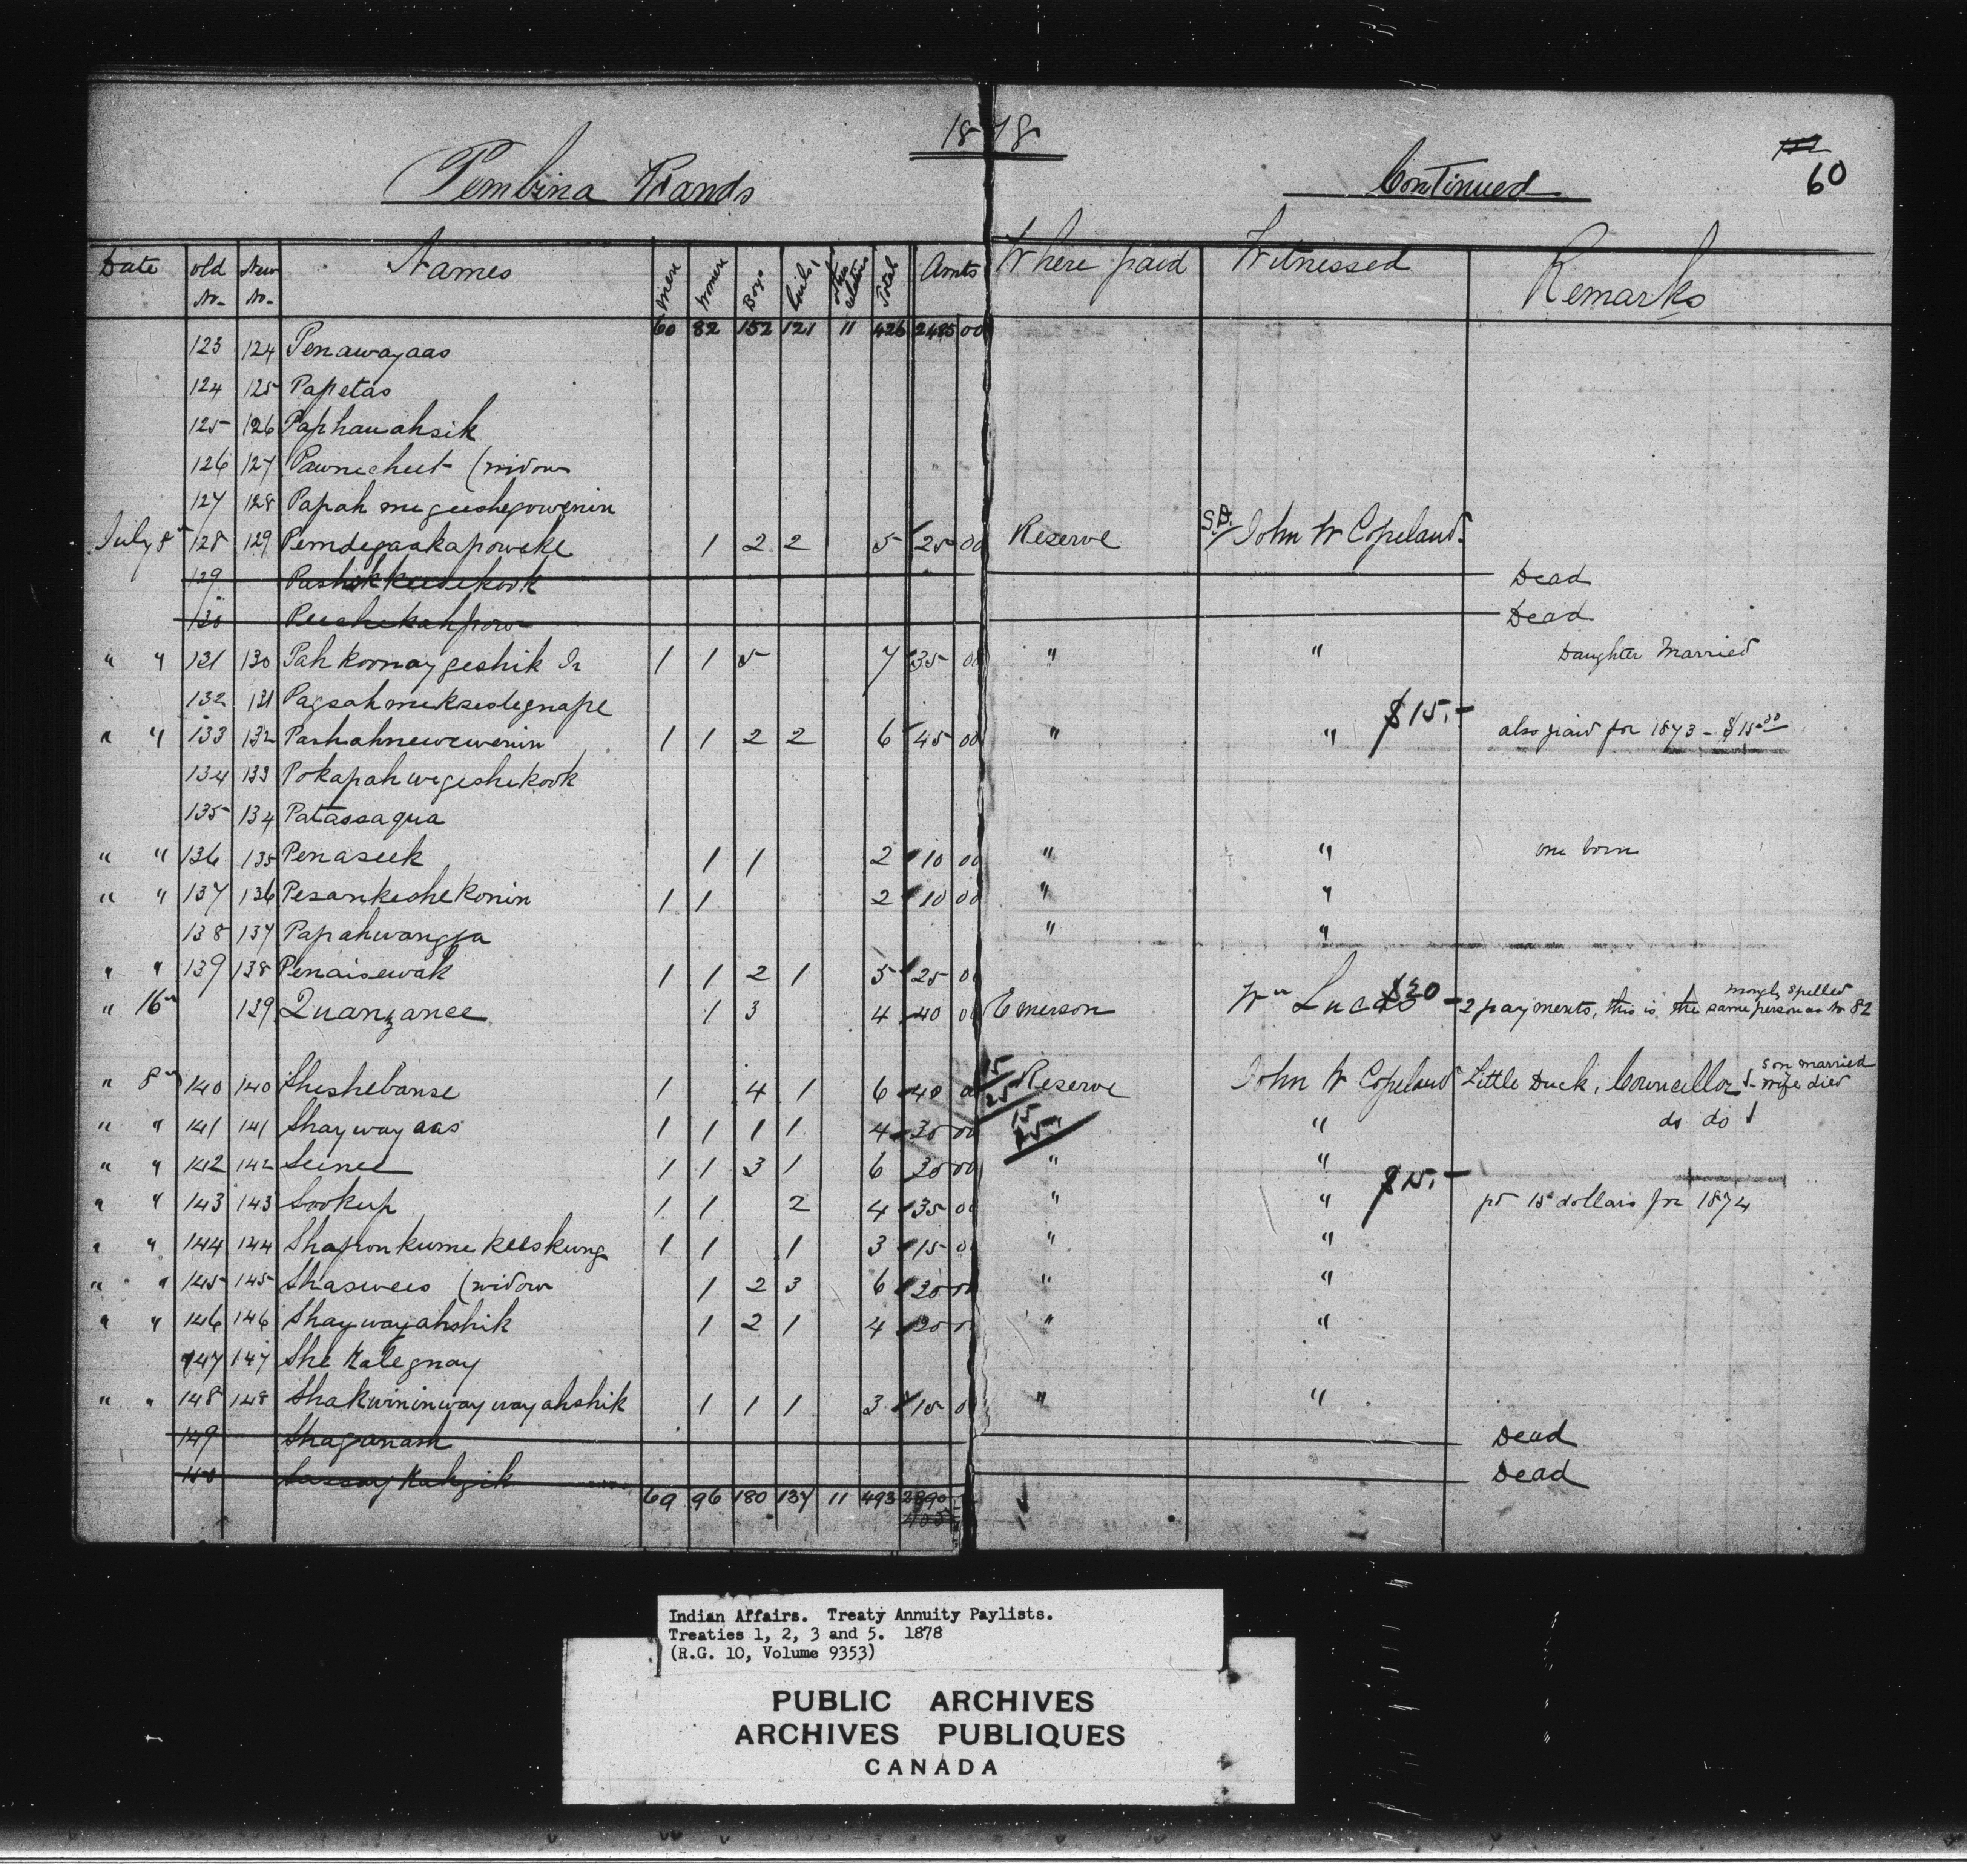 1878
Pembina Bands Continued 60
Date old No. New No. Names Men Women Boys Girls Other relatives Total Amts Where paid Witnessed Remarks
60 82 152 121 11 426 2485 00
123 124 Penawayaas
124 125 Papetas
125 126 Paphauahsik
126 127 Pawnecheet (widow
127 128 Papah megeeshegowenin
July 8th 128 129 Pemdegaakapoweke 1 2 2 5 25 00 Reserve S.D. John W Copeland
129 Pashokkeesekook Dead
130 Peechekahpow Dead
" " 131 130 Pahkoonaygeshik Jr 1 1 5 7 35 00 " " Daughter Married
132 131 Pagsahmeksedegnape
" " 133 132 Pashahnewewenin 1 1 2 2 6 45 00 " " $15.- also paid for 1873 - $15.00
134 133 Pokapahwegeshekook
135 134 Patassaqua
" " 136 135 Penaseek 1 1 2 10 00 " " one born
" " 137 136 Pesankeshekonin 1 1 2 10 00 " "
138 137 Papahwangja " "
" " 139 138 Penaisewak 1 1 2 1 5 25 00
" 16th 139 Quanzanee 1 3 4 40 00 Emerson Wm Lucas $20 - 2 payments, this is the same person as No 82 wrongly spelled
" 8th 140 140 Sheshebanse 1 4 1 6 40 00 15 25 Reserve John W Copeland Little Duck, Councillor, 1 son married 1 wife died
" " 141 141 Shaywayaas 1 1 1 1 4 30 00 15 15 " do do 1
" " 142 142 Seenee 1 1 3 1 6 30 00 " "
" " 143 143 Sookup 1 1 2 4 35 00 " " $15.- pd 15 dollars for 1874
" " 144 144 Shaponkumekeeskung 1 1 1 3 15 00 " "
" " 145 145 Shaswees (widow 1 2 3 6 30 00 " "
" " 146 146 Shaywayahshik 1 2 1 4 20 00 " "
147 147 She Kalegnay
" " 148 148 Shakwininwaywayahshik 1 1 1 3 15 00 " "
149 Shaganash Dead
150 Sassaykuhzik Dead
69 96 180 137 11 493 2890
405
Indian Affairs. Treaty Annuity Paylists.
Treaties 1, 2, 3 and 5. 1878
(R.G. 10, Volume 9353)
PUBLIC ARCHIVES
ARCHIVES PUBLIQUES
CANADA